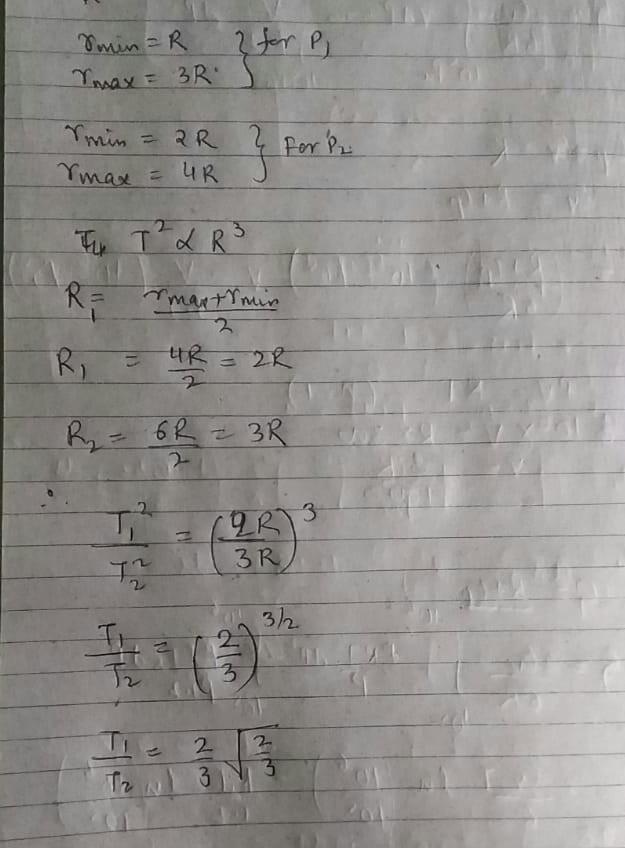 rmin = R } for P1
rmax = 3R
rmin = 2R } For P2
rmax = 4R
T² ∝ R³
R1 = (rmax + rmin)/2
R1 = 4R/2 = 2R
R2 = 6R/2 = 3R
∴
T1²/T2² = (2R/3R)³
T1/T2 = (2/3)^3/2
T1/T2 = 2/3 √(2/3)